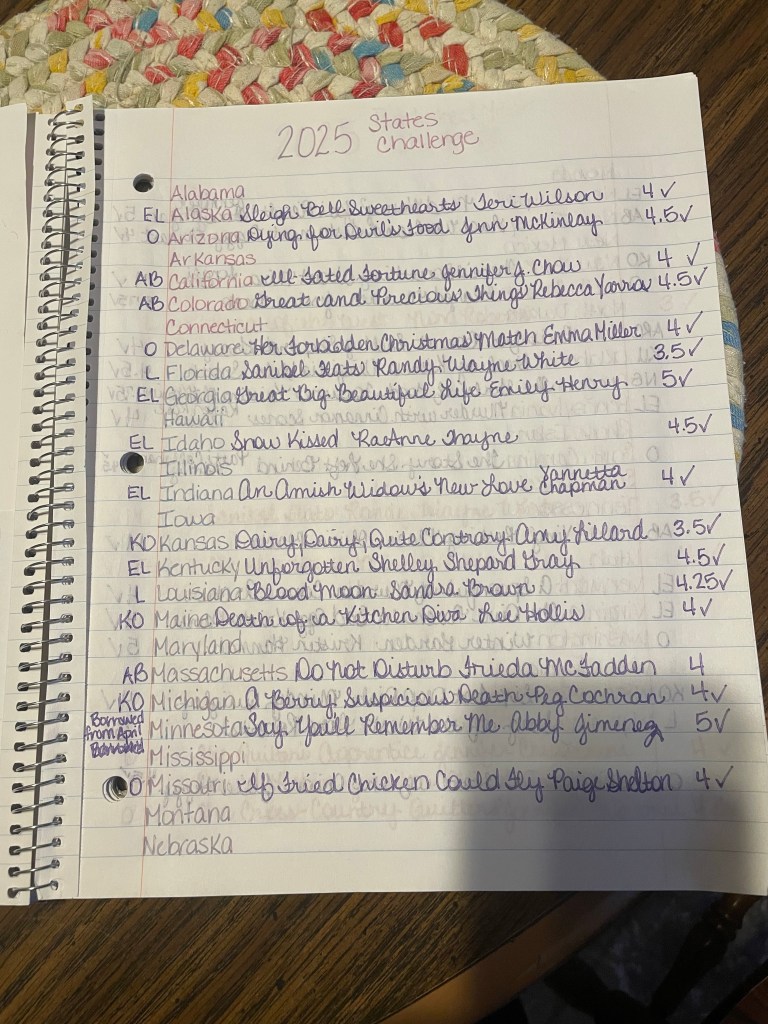 2025 States Challenge
Alabama
EL Alaska Sleigh Bell Sweethearts Teri Wilson 4 ✓
O Arizona Dying for Devil's Food Jenn McKinlay 4.5✓
Arkansas
AB California Ill Fated Fortune Jennifer J. Chow 4 ✓
AB Colorado Great and Precious Things Rebecca Yarros 4.5✓
Connecticut
O Delaware Her Forbidden Christmas Match Emma Miller 4✓
L Florida Sanibel Flats Randy Wayne White 3.5✓
EL Georgia Great Big Beautiful Life Emily Henry 5✓
Hawaii
EL Idaho Snow Kissed RaeAnne Thayne 4.5✓
Illinois
EL Indiana An Amish Widow's New Love Vannetta Chapman 4✓
Iowa
KO Kansas Dairy, Dairy, Quite Contrary Amy Lillard 3.5✓
EL Kentucky Unforgotten Shelley Shepard Gray 4.5✓
L Louisiana Blood Moon Sandra Brown 4.25✓
KO Maine Death of a Kitchen Diva Lee Hollis 4✓
Maryland
AB Massachusetts Do Not Disturb Frieda McFadden 4
KO Michigan A Berry Suspicious Death Peg Cochran 4✓
Borrowed from April Minnesota Say You'll Remember Me Abby Jimenez 5✓
Mississippi
O Missouri If Fried Chicken Could Fly Paige Shelton 4✓
Montana
Nebraska